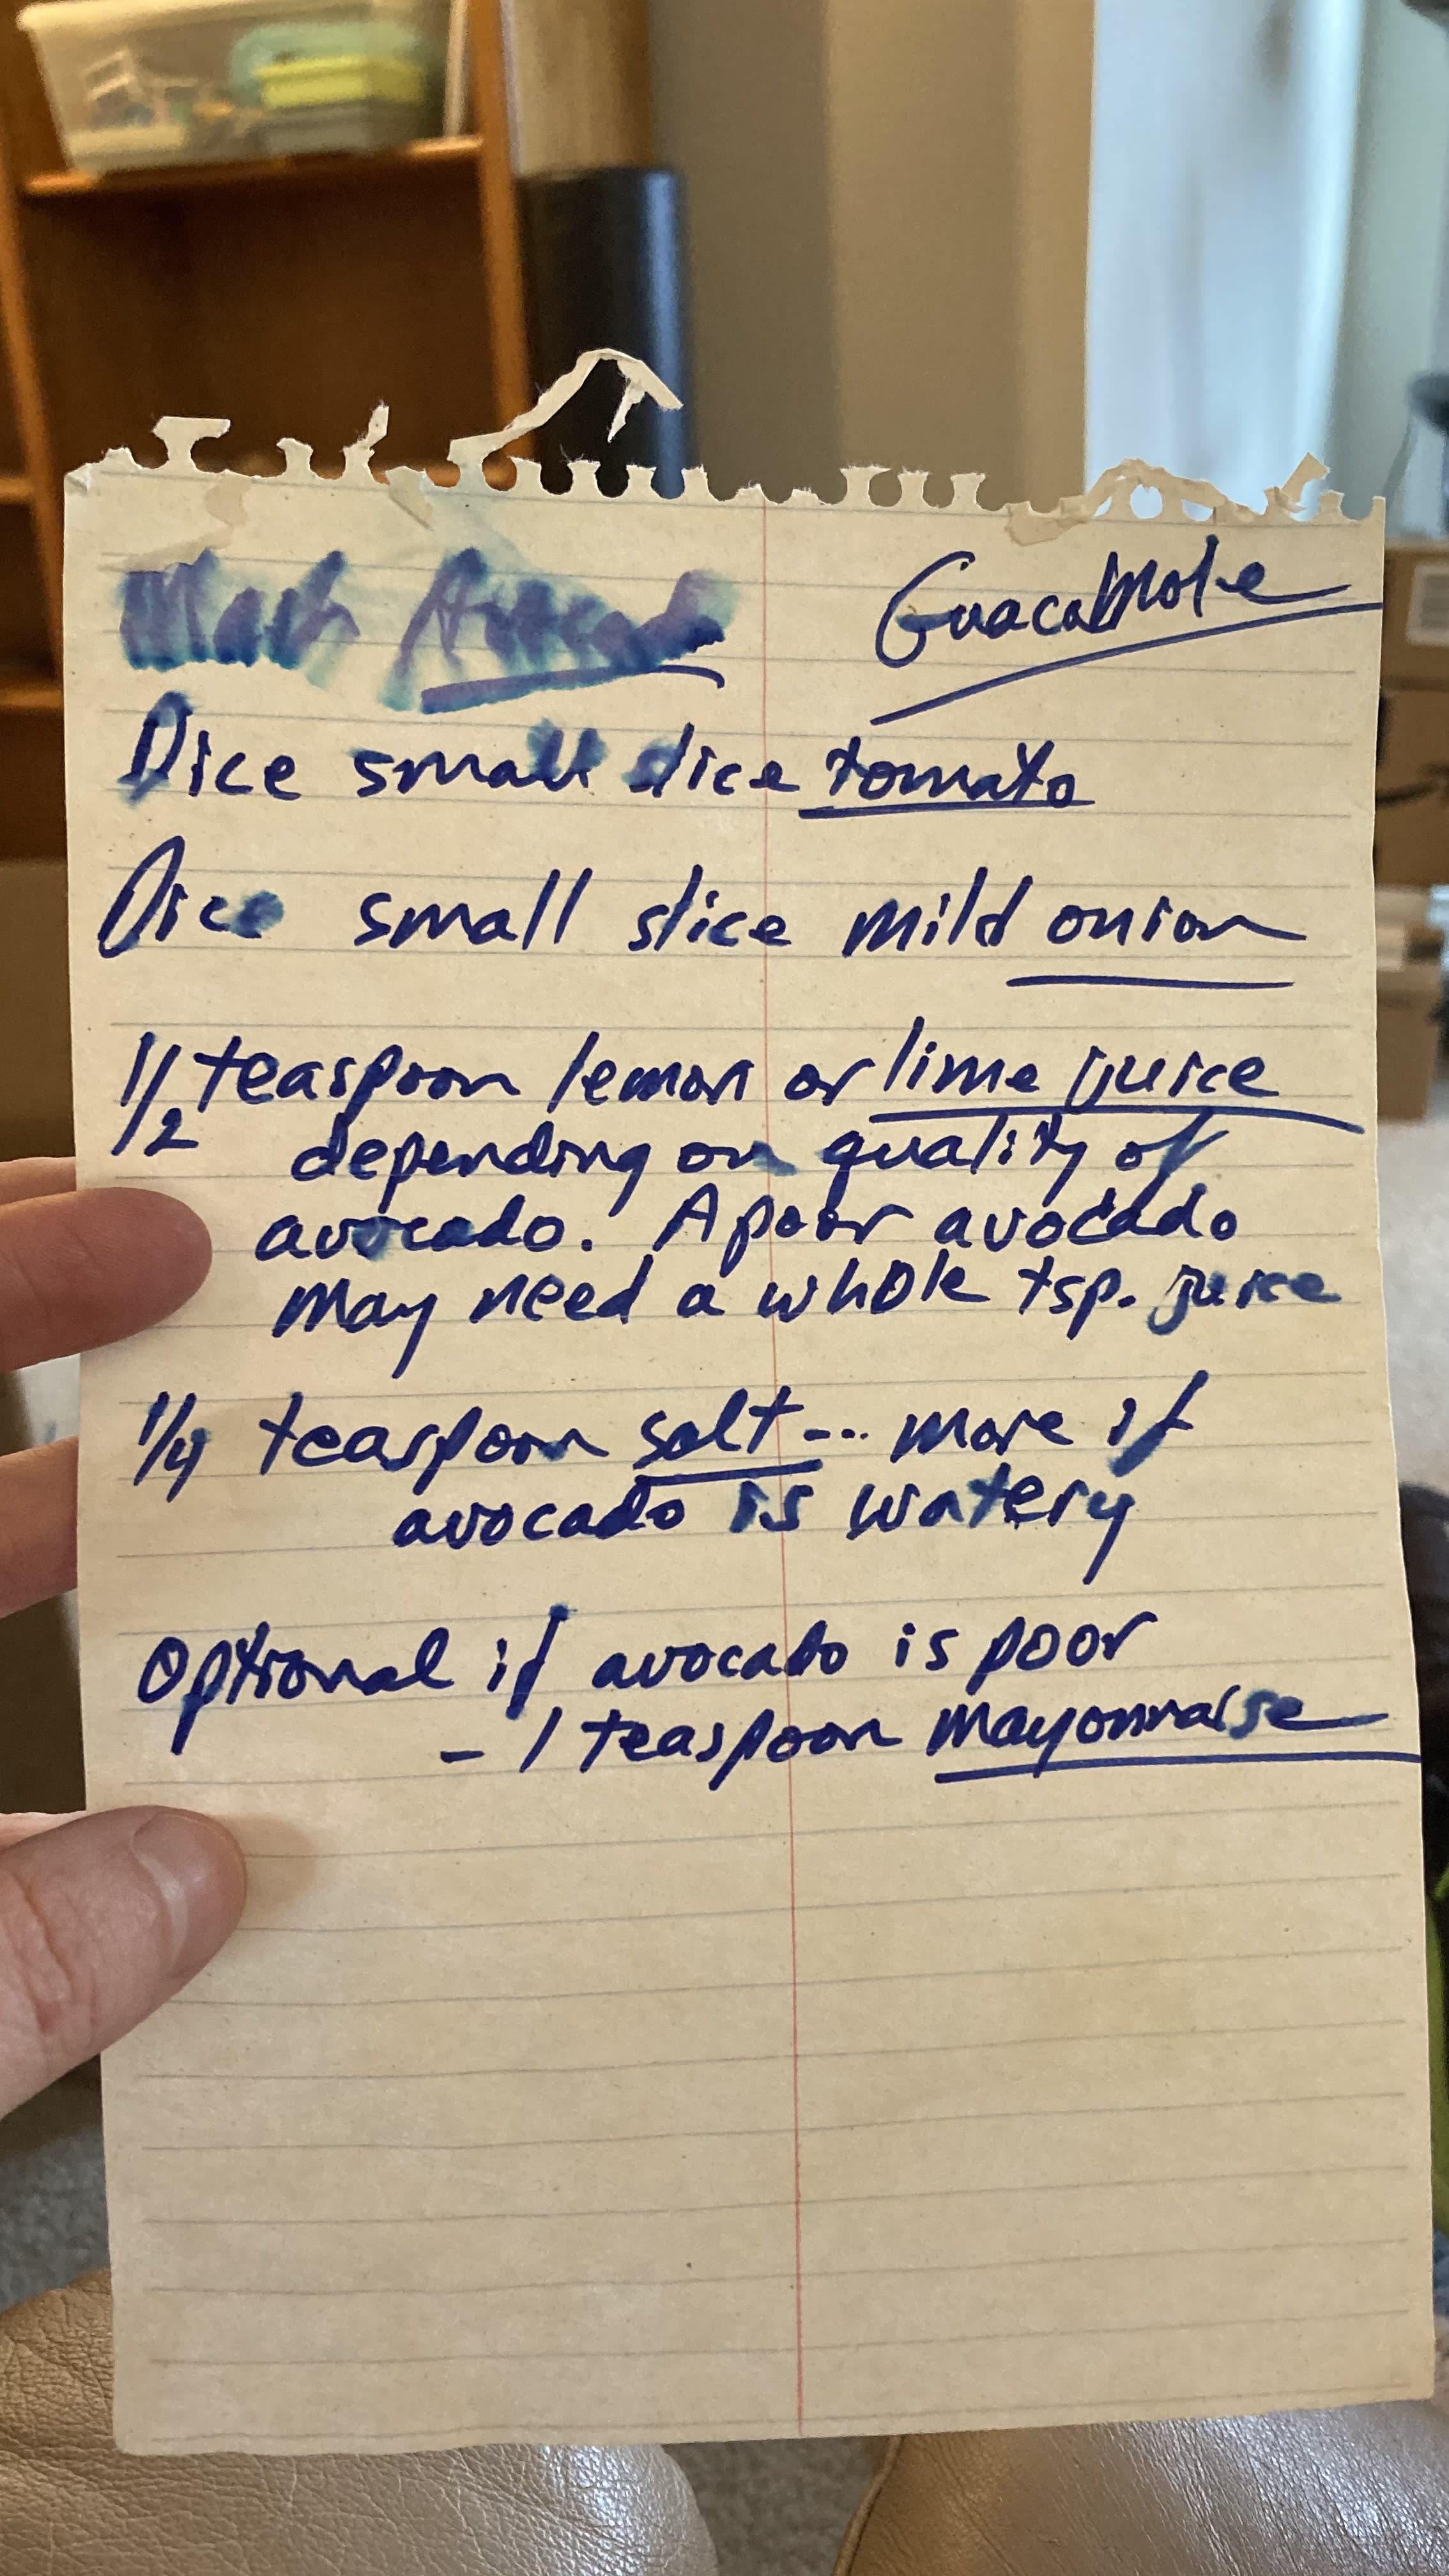 Guacamole
Mash Avocado
Dice small slice tomato
Dice small slice mild onion
1/2 teaspoon lemon or lime juice
depending on quality of
avocado. A poor avocado
may need a whole tsp. juice
1/4 teaspoon salt... more if
avocado is watery
Optional if avocado is poor
- 1 teaspoon mayonnaise